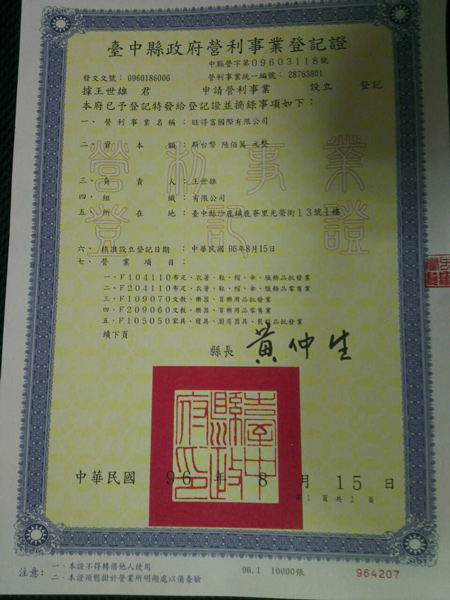 臺中縣政府營利事業登記證
中縣營字第09603118號
發文文號：0960186006 營利事業統一編號：28763801
據王世雄 君 申請營利事業 設立 登記
本府已予登記特發給登記證並摘錄事項如下：
一、營利事業名稱：旺得富國際有限公司
二、資本額：新台幣 陸佰萬 元整
三、負責人：王世雄
四、組織：有限公司
五、所在地：臺中縣沙鹿鎮鹿寮里光榮街13號1樓
六、核准設立登記日期：中華民國 96年8月15日
七、營業項目：
一、F104110布疋、衣著、鞋、帽、傘、服飾品批發業
二、F204110布疋、衣著、鞋、帽、傘、服飾品零售業
三、F109070文教、樂器、育樂用品批發業
四、F209060文教、樂器、育樂用品零售業
五、F105050家具、寢具、廚房器具、裝設品批發業
續下頁
縣長 黃仲生
臺中縣政府印
中華民國 96 年 8 月 15 日
第 1 頁共 2 頁
注意：一、本證不得轉借他人使用
二、本證須懸掛於營業所明顯處以備查驗
96.1 10000張
964207
營利事業
登記證